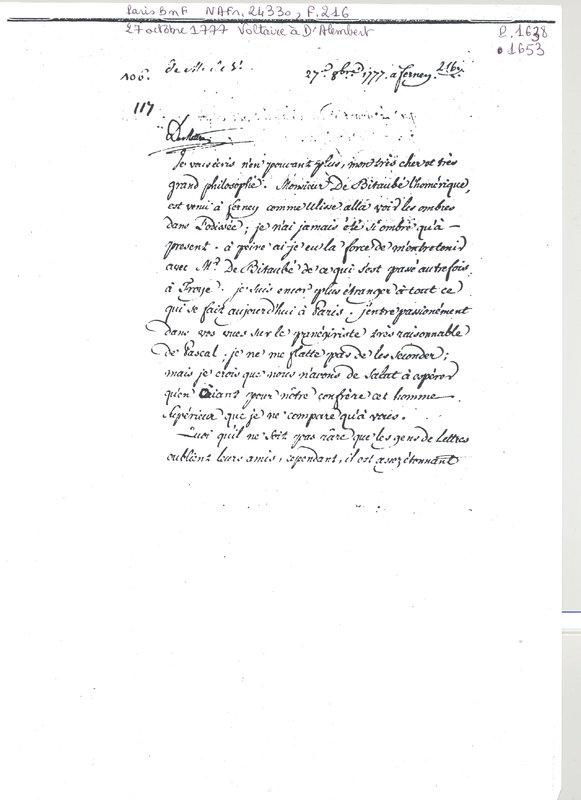 Paris BnF NAFr. 24330, F. 216
27 octobre 1777 Voltaire à D'Alembert
P. 1638
• 1653
106e.
27e. 8bre. 1777. à ferney. 216
117
Je vous écris n'en pouvant plus, mon très cher et très
grand philosophe. Monsieur De Bitaubé l'homérique,
est venu à ferney comme Ulisse alla voir les ombres
dans l'odissée; je n'ai jamais été si ombre qu'à
present. à peine ai je eu la force de m'entretenir
avec Mr. De Bitaubé de ce qui s'est passé autrefois
à Troye. je suis encor plus étranger à tout ce
qui se fait aujourd'hui à Paris. j'entre passionément
dans vos vues sur le panégiriste très raisonnable
de Pascal. je ne me flatte pas de les seconder;
mais je crois que nous n'avons de salut à espérer
qu'en aiant pour nôtre confrère cet homme
supérieur que je ne compare qu'à vous.
Quoi qu'il ne soit pas rare que les gens de Lettres
oublient leurs amis, cependant, il est assez étonnant